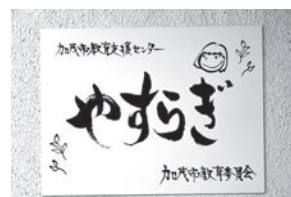 加茂市教育支援センター
やすらぎ
加茂市教育委員会